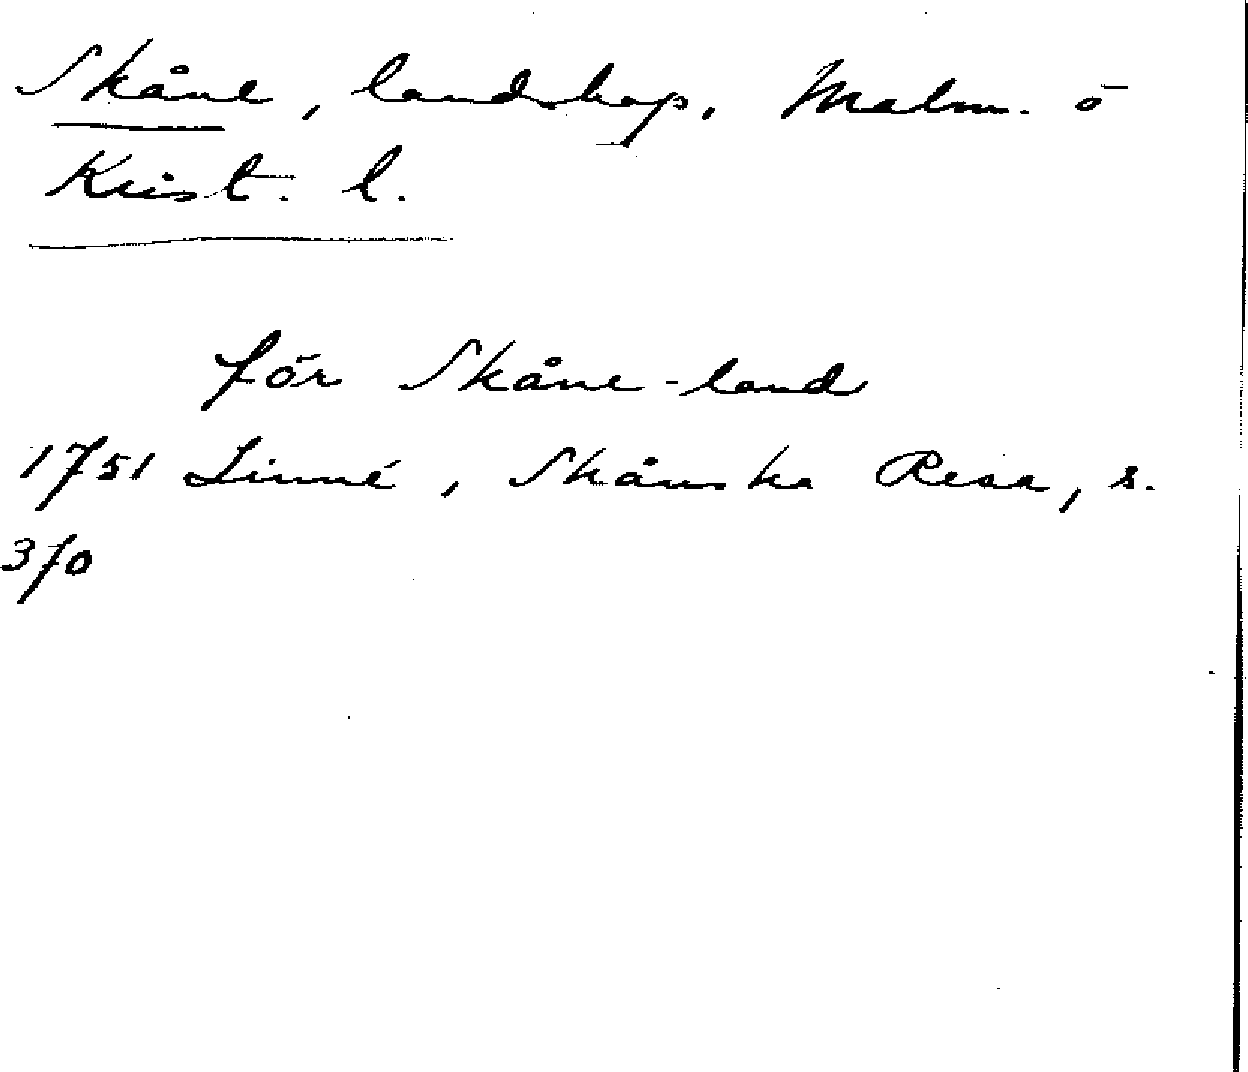 Skåne, landskap. Malm. o
Krist. l.
för Skåne-land
1751 Linné, Skånska Resa, s.
370